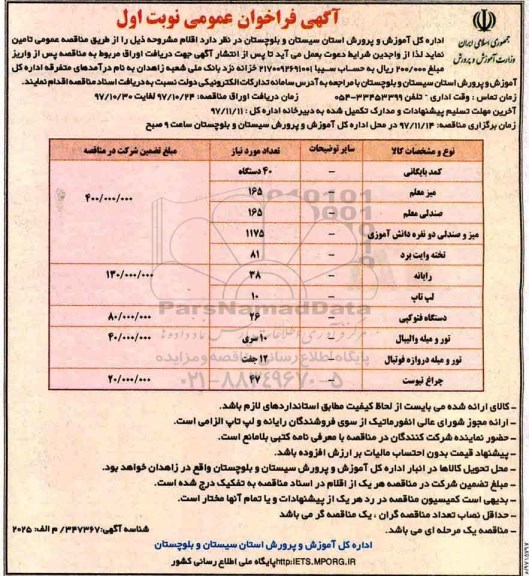 آگهی فراخوان عمومی نوبت اول
جمهوری اسلامی ایران
وزارت آموزش و پرورش
اداره کل آموزش و پرورش استان سیستان و بلوچستان در نظر دارد اقلام مشروحه ذیل را از طریق مناقصه عمومی تامین
نماید لذا از واجدین شرایط دعوت بعمل می آید تا پس از انتشار آگهی جهت دریافت اوراق مربوط به مناقصه پس از واریز
مبلغ ۲۰۰/۰۰۰ ریال به حساب سیبا ۲۱۷۰۰۹۲۶۹۱۰۰۱ خزانه نزد بانک ملی شعبه زاهدان به نام درآمدهای متفرقه اداره کل
آموزش و پرورش استان سیستان و بلوچستان با مراجعه به آدرس سامانه تدارکات الکترونیکی دولت نسبت به دریافت اسناد مناقصه اقدام نمایند.
زمان تماس : وقت اداری - تلفن ۳۳۴۵۳۳۹۹-۰۵۴ زمان دریافت اوراق مناقصه: ۹۷/۱۰/۲۴ لغایت ۹۷/۱۰/۳۰
آخرین مهلت تسلیم پیشنهادات و مدارک تکمیل شده به دبیرخانه اداره کل : ۹۷/۱۱/۱۱
زمان برگزاری مناقصه: ۹۷/۱۱/۱۴ در محل اداره کل آموزش و پرورش سیستان و بلوچستان ساعت ۹ صبح
نوع و مشخصات کالا سایر توضیحات تعداد مورد نیاز مبلغ تضمین شرکت در مناقصه
کمد بایگانی – ۴۰ دستگاه
میز معلم – ۱۶۵ ۴۰۰/۰۰۰/۰۰۰
صندلی معلم – ۱۶۵
میز و صندلی دو نفره دانش آموزی – ۱۱۷۵
تخته وایت برد – ۸۱
رایانه – ۳۸ ۱۳۰/۰۰۰/۰۰۰
لپ تاپ – ۱۰
دستگاه فتوکپی – ۲۶ ۸۰/۰۰۰/۰۰۰
تور و میله والیبال – ۱۰ سری ۴۰/۰۰۰/۰۰۰
تور و میله دروازه فوتبال – ۱۲ جفت
چراغ تیوست – ۴۷ ۲۰/۰۰۰/۰۰۰
ParsNamadData
پایگاه اطلاع رسانی مناقصه و مزایده
۰۲۱-۸۸۳۴۹۶۷۰-۵
- کالای ارائه شده می بایست از لحاظ کیفیت مطابق استانداردهای لازم باشد.
- ارائه مجوز شورای عالی انفورماتیک از سوی فروشندگان رایانه و لپ تاپ الزامی است.
- حضور نماینده شرکت کنندگان در مناقصه با معرفی نامه کتبی بلامانع است.
- پیشنهاد قیمت بدون احتساب مالیات بر ارزش افزوده باشد.
- محل تحویل کالاها در انبار اداره کل آموزش و پرورش سیستان و بلوچستان واقع در زاهدان خواهد بود.
- مبلغ تضمین شرکت در مناقصه هر یک از اقلام در اسناد مناقصه به تفکیک درج شده است.
- بدیهی است کمیسیون مناقصه در رد هر یک از پیشنهادات و یا تمام آنها مختار است.
- حداقل نصاب تعداد مناقصه گران ، یک مناقصه گر می باشد
- مناقصه یک مرحله ای می باشد.
شناسه آگهی: ۳۴۷۳۶۷/ م الف: ۲۰۲۵
اداره کل آموزش و پرورش استان سیستان و بلوچستان
http:IETS.MPORG.IR پایگاه ملی اطلاع رسانی کشور